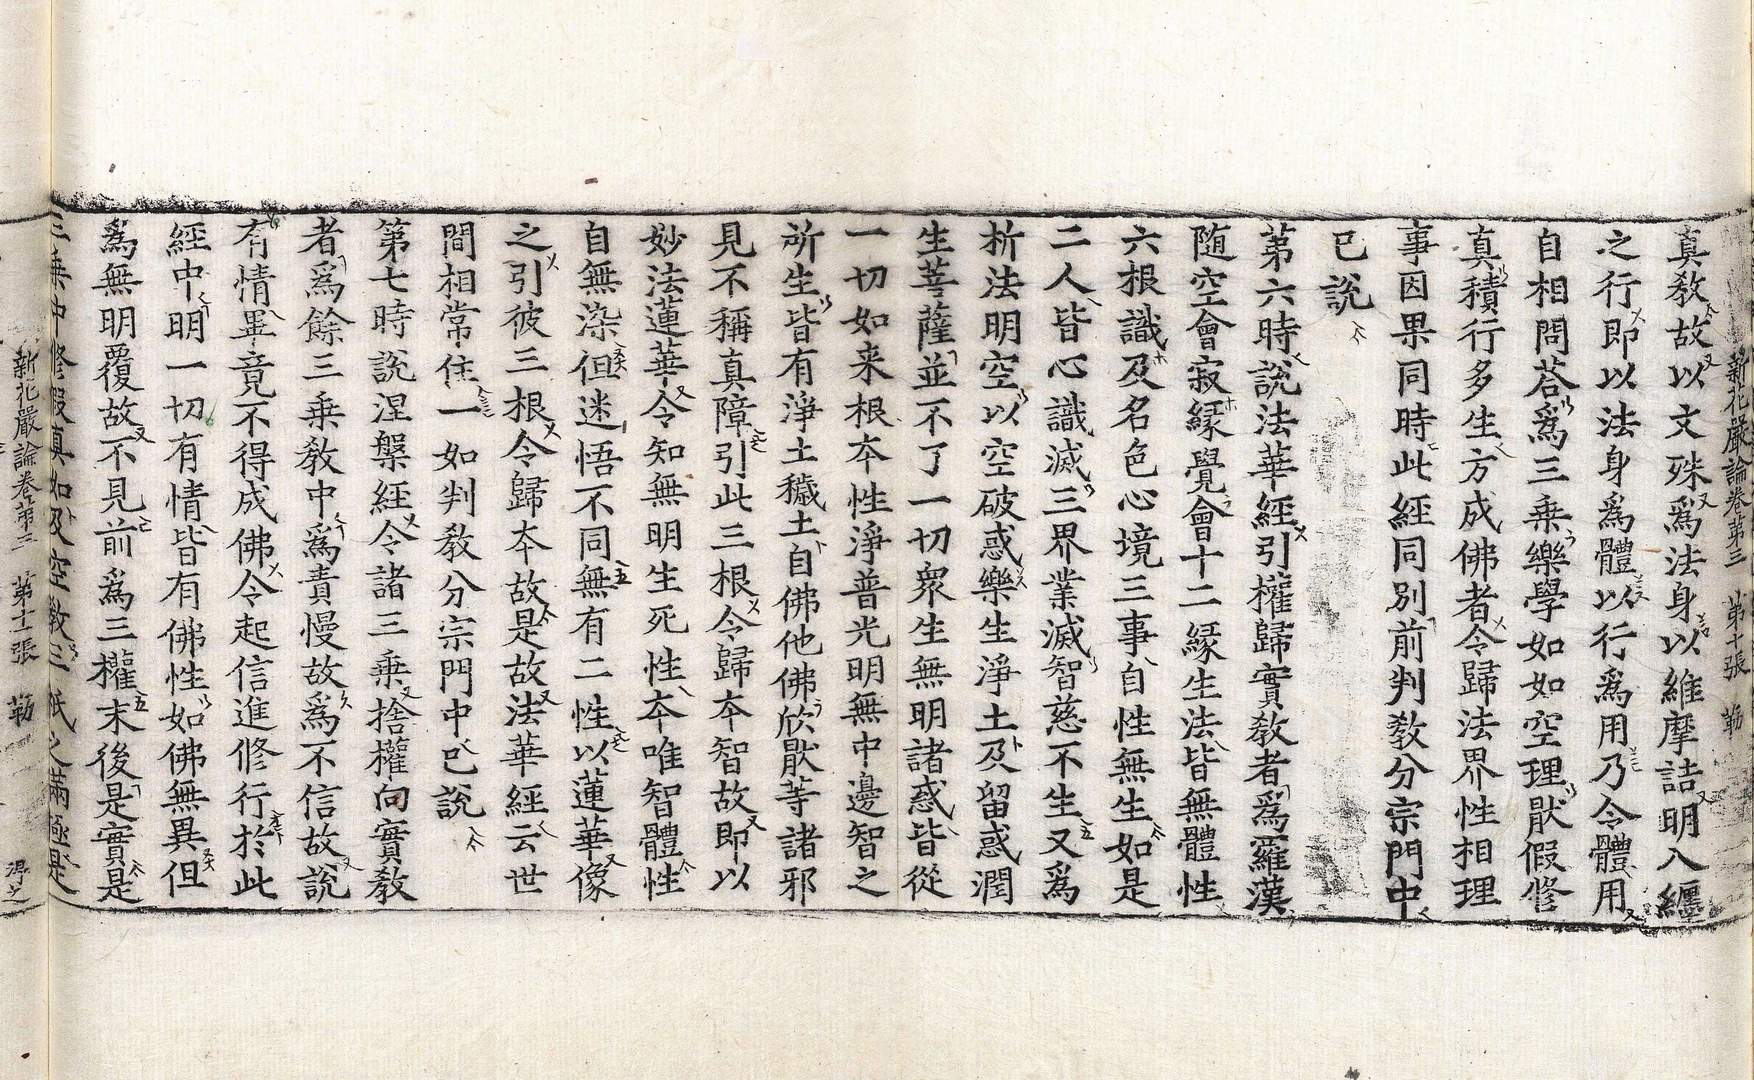 新花嚴論卷第三 第十張 勒
真教故以文殊爲法身以維摩詰明入纏
之行即以法身爲體以行爲用乃令體用
自相問荅爲三乗樂學如如空理猒假修
真積行多生方成佛者令歸法界性相理
事因果同時此經同別前判教分宗門中
已說
第六時說法華經引權歸實教者爲羅漢
随空會寂緣覺會十二緣生法皆無體性
六根識及名色心境三事自性無生如是
二人皆心識滅三界業滅智慈不生又爲
析法明空以空破惑樂生淨土及留惑潤
生菩薩並不了一切衆生無明諸惑皆從
一切如来根夲性淨普光明無中邊智之
所生皆有淨土穢土自佛他佛欣猒等諸邪
見不稱真障引此三根令歸夲智故即以
妙法蓮華令知無明生死性夲唯智體性
自無染但迷悟不同無有二性以蓮華像
之引彼三根令歸夲故是故法華經云世
間相常住一如判教分宗門中已說
第七時說涅槃經令諸三乗捨權向實教
者爲餘三乗教中爲責慢故爲不信故說
有情畢竟不得成佛令起信進修行於此
經中明一切有情皆有佛性如佛無異但
爲無明覆故不見前爲三權末後是實是
三乗中修假真如及空教三祇之滿極是
新花嚴論卷第三 第十一張 勒